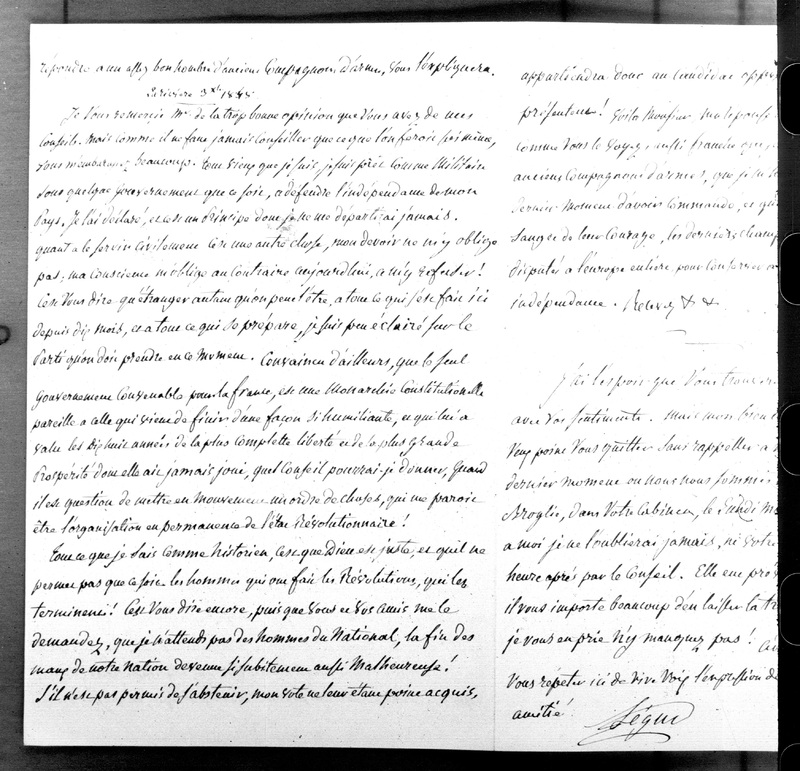 répondre a un assez bon nombre d'anciens Compagnons d'armes, vous l'expliquera.
3 Xbre 1848
Je vous remercie Mr de la trop bonne opinion que vous avez de mes
conseils. mais comme il ne faut jamais conseiller que ce que l'on feroit soi même,
vous m'embarassez beaucoup. tout vieux que je suis, je suis prêt comme Militaire
sous quelque gouvernement que ce soit, a défendre l'indépendance de mon
Pays. Je l'ai déclaré, et c'est un Principe dont je ne me départirai jamais.
quant a le servir civilement c'est une autre chose, mon devoir ne m'y oblige
pas; ma conscience m'oblige au Contraire aujourdhui, a m'y refuser!
c'est vous dire qu'étranger autant qu'on peut l'être, a tout ce qui s'est fait ici
depuis dix mois, et a tout ce qui se prépare, je suis peu éclairé sur le
Parti qu'on doit prendre en ce moment. Convaincu d'ailleurs, que le seul
gouvernement Convenable pour la france, est une Monarchie Constitutionnelle
pareille a celle qui vient de finir d'une façon si humiliante, et qui lui a
valu les dix huit années de la plus complette liberté et de la plus grande
Prospérité dont elle ait jamais joui, quel Conseil pourrai-je donner, quand
il est question de mettre en mouvement un ordre de choses, qui me paroit
être l'organisation en permanence de l'état Révolutionnaire!
tout ce que je sais comme historien, c'est que Dieu est juste, et qu'il ne
permet pas que ce soit les hommes qui ont fait les Révolutions, qui les
terminent! C'est vous dire encore, puisque vous et vos amis me le
demandez, que je n'attends pas des hommes du National, la fin des
maux de notre nation devenue si subitement aussi Malheureuse!
S'il n'est pas permis de s'abstenir, mon vote ne leur étant point acquis,
appartiendra donc au candidat
présenteront! Voilà Monsieur ma réponse
comme vous le voyez aussi franche que
anciens Compagnons d'armes, que je
dernier moment d'avoir commandé, et
sanges de leur courage, les derniers champ
disputés a l'europe entière pour conserver
indépendance. Recevez & &
J'ai l'espoir que vous trouverez
avec vos sentimens. mais mon bien
veux point vous quitter sans rappeller a
dernier moment ou nous nous sommes
Broglie, dans votre Cabinet, le Lundi
a moi je ne l'oublierai jamais, ni votre
heure après par le Conseil. Elle en
il vous importe beaucoup d'en laisser la
je vous en prie n'y manquez pas!
vous répéter ici de vive voix l'expression de
amitié
Ségur